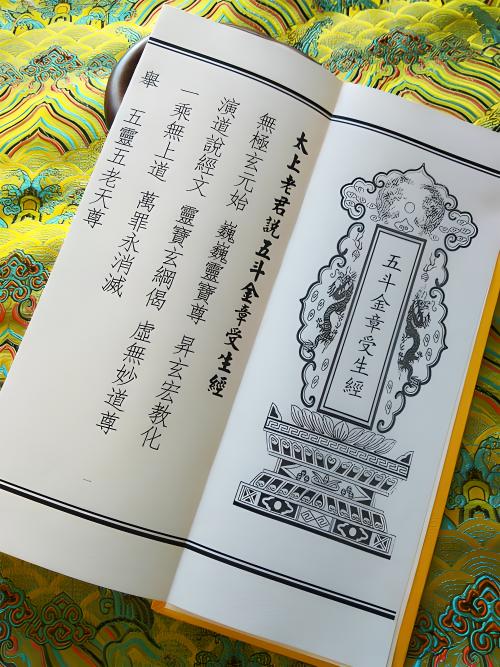 五斗金章受生經
太上老君說五斗金章受生經
無極玄元始　巍巍靈寶尊　昇玄宏教化
演道說經文　靈寶玄綱偈　虛無妙道尊
一乘無上道　萬罪永消滅
舉　五靈五老天尊
一